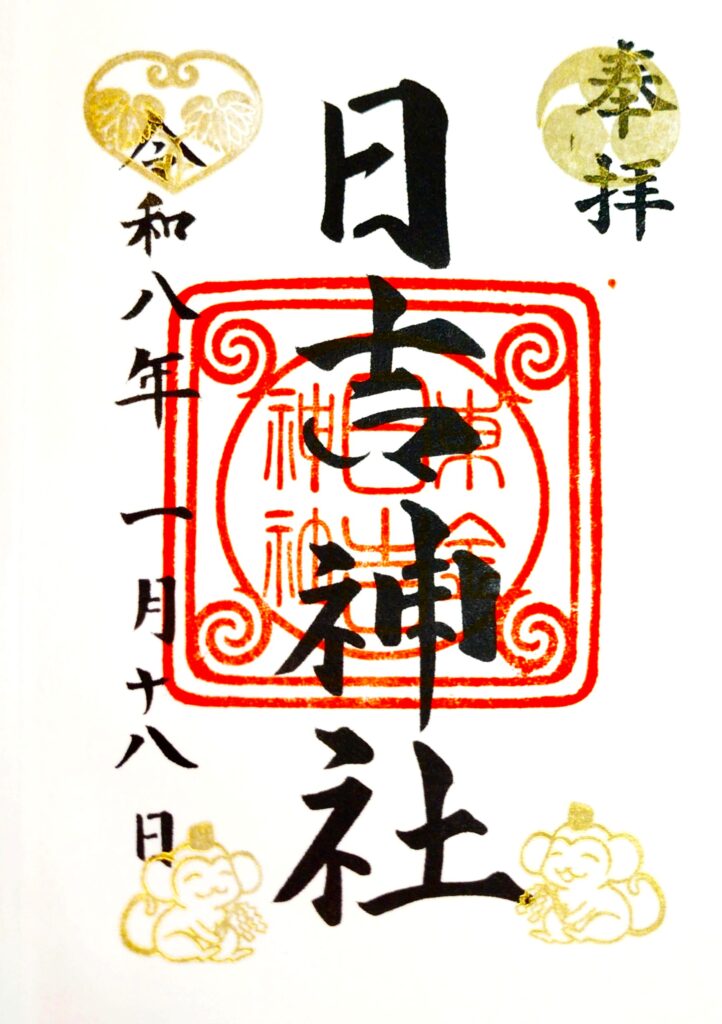 奉拝
日吉神社
東金
日吉
神社
令和八年一月十八日